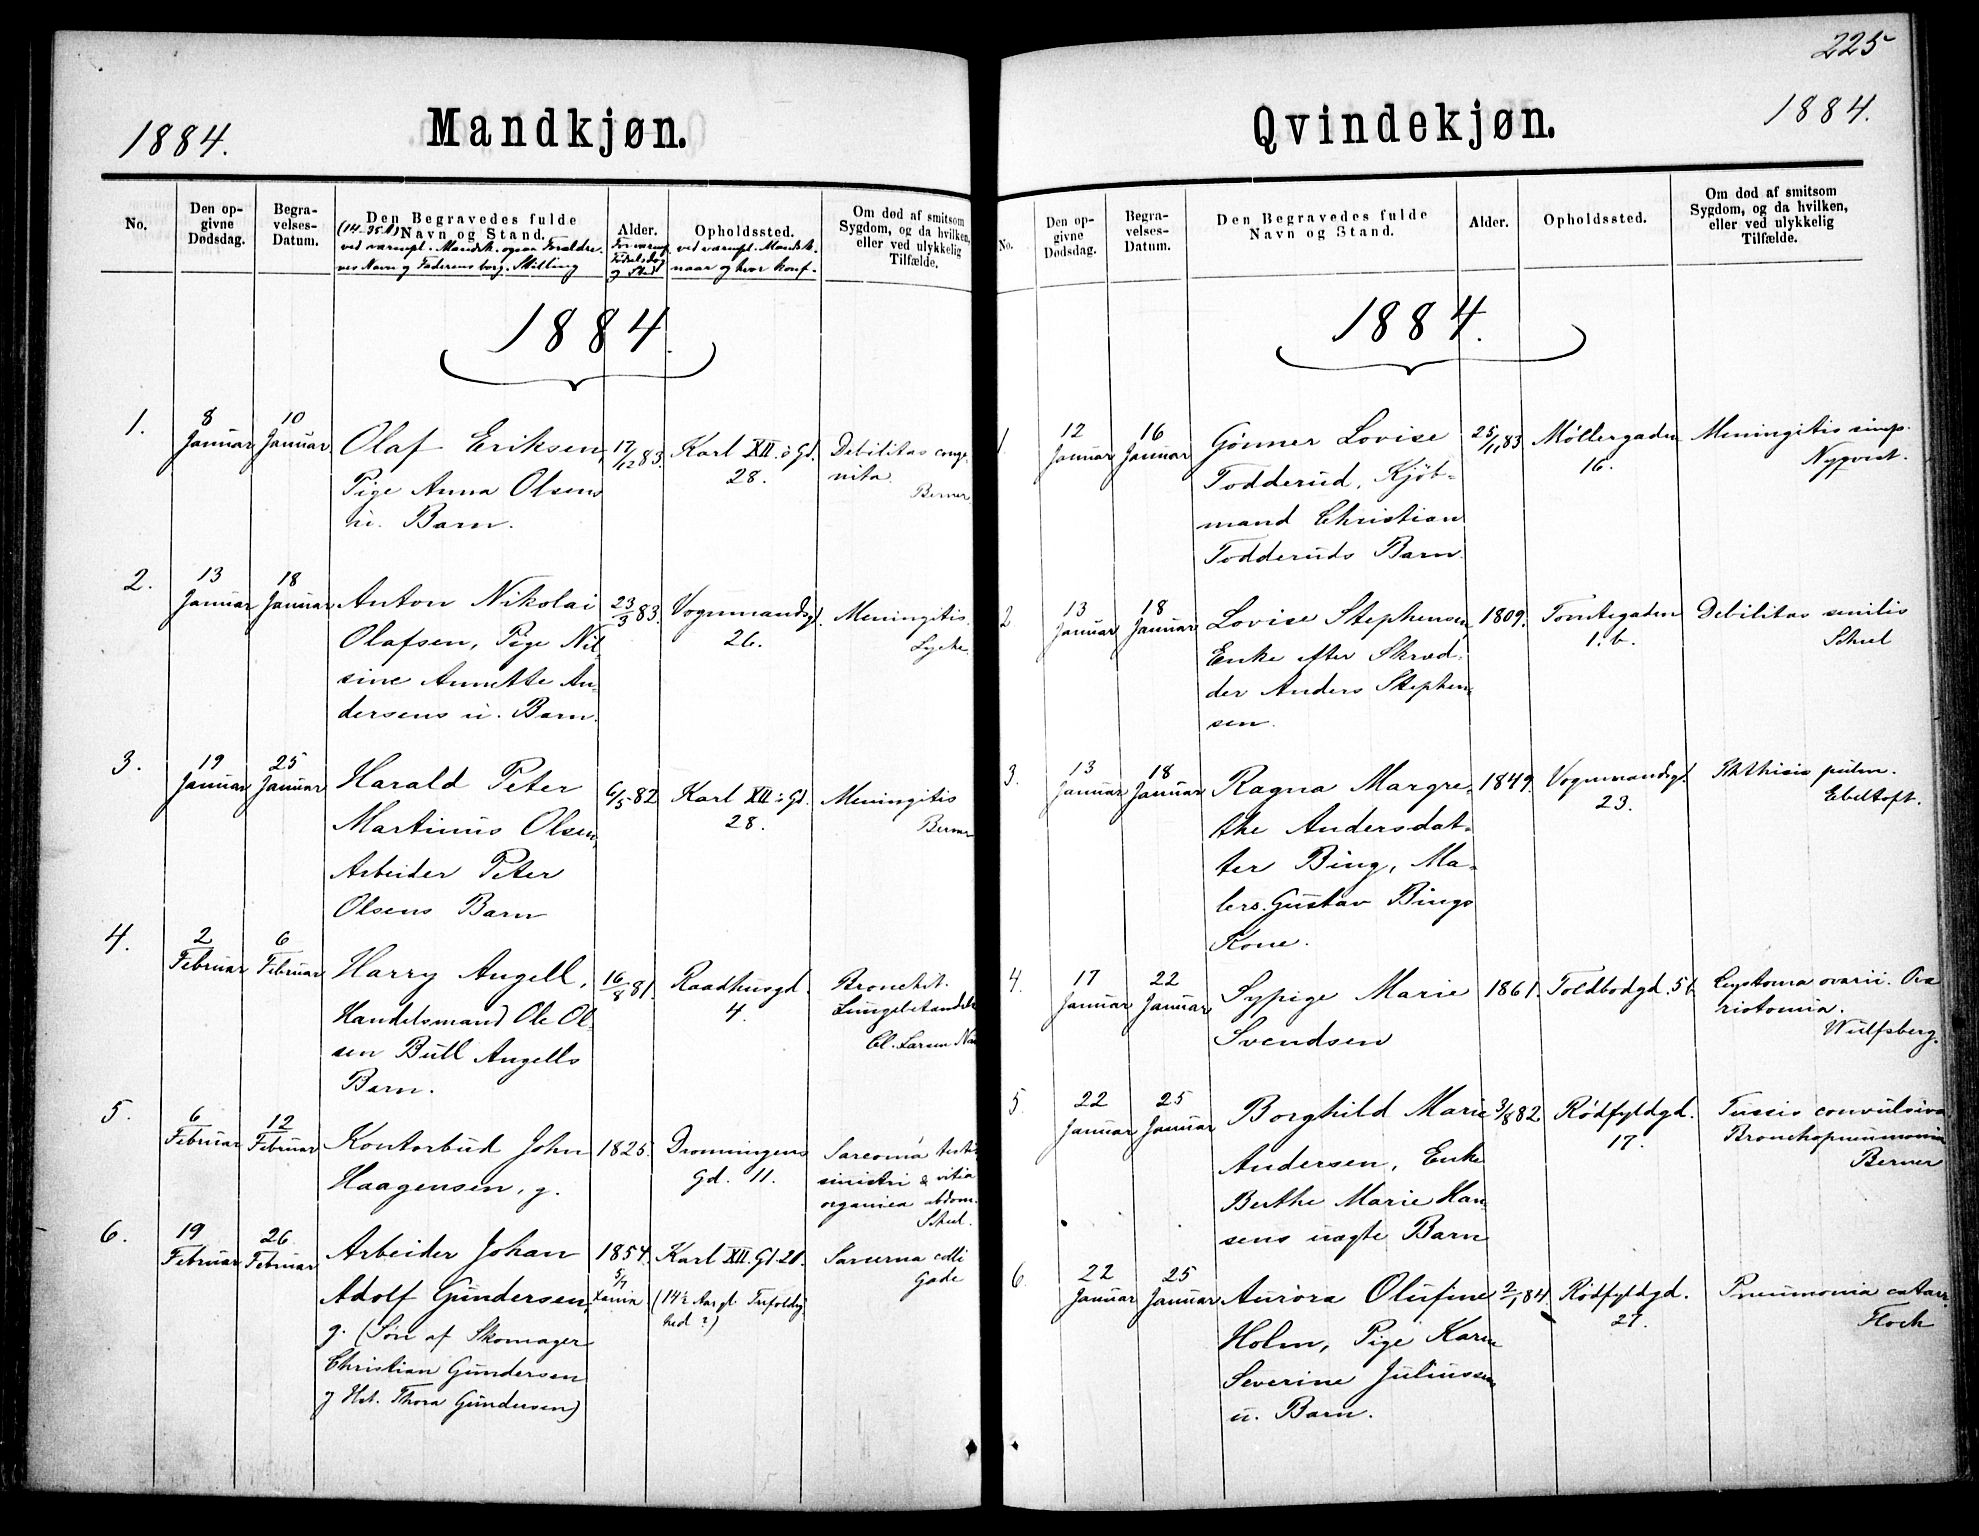 1884.
Mandkjøn.
No.
Den op-
givne
Dødsdag.
Begra-
velses-
Datum.
Den Begravedes fulde
Navn og Stand.
(14-25 A)
ved værnepl. Mandsk. ogsaa Forældre-
nes Navn og Faderens borg. Stilling
Alder.
For værnepl.
Fødselsdag
og Sted
Opholdssted.
ved værnepl. Mandsk.
naar og hvor konf.
Om død af smitsom
Sygdom, og da hvilken,
eller ved ulykkelig
Tilfælde.
1884.
1.
8
Januar
10
Januar
Olaf Eriksen,
Pige Anna Olsens
u. Barn.
17/12 83.
Karl XII s Gd.
28.
Debilitas conge-
nita.
Berner
2.
13
Januar
18
Januar
Anton Nikolai
Olafsen, Pige Nil-
sine Annette An-
dersens u. Barn.
23/3 83.
Vognmandsgd.
26.
Meningitis.
Lyche.
3.
19
Januar
25
Januar
Harald Peter
Martinus Olsen,
Arbeider Peter
Olsens Barn
6/5 82
Karl XII s Gd.
28.
Meningitis
Berner
4.
2
Februar
6
Februar
Harry Angell,
Handelsmand Ole Ol-
sen Bull Angells
Barn.
16/8 81.
Raadhusgd.
4.
Bronchit.
Lungebetændelse
Cl. Larsen
5.
6
Februar
12
Februar
Kontorbud John
Haagensen, g.
1825.
Dronningens
Gd. 11.
Sarcoma testis
sinistri & vitia
organica abdom.
Schul.
6.
19
Februar
26
Februar
Arbeider Johan
Adolf Gundersen,
g. (Søn af Skomager
Christian Gundersen
g Hst. Thora Gundersen)
1854.
5/7
Xania
Karl XII. Gd. 20.
(14½ Aar gl. Trefoldig
hed?)
colli
Gade
225
Qvindekjøn.
1884.
No.
Den op-
givne
Dødsdag.
Begra-
velses-
Datum.
Den Begravedes fulde
Navn og Stand.
Alder.
Opholdssted.
Om død af smitsom
Sygdom, og da hvilken,
eller ved ulykkelig
Tilfælde.
1884.
1.
12
Januar
16
Januar
Gönner Lovise
Todderud, Kjöb-
mand Christian
Todderuds Barn.
25/11 83
Möllergaden
16.
Meningitis simp.
Nyqvist.
2
13
Januar
18
Januar
Lovise Stephensen,
Enke efter Skræd-
der Anders Stephen-
sen.
1809.
Tomtegaden
1. b.
Debilitas senilis
Schul
3.
13
Januar
18
Januar
Ragna Margre-
the Andersdat-
ter Bing, Ma-
lers. Gustav Bings
Kone.
1849.
Vognmandsgd.
23.
Phthisis pulm.
Ebeltoft.
4.
17
Januar
22
Januar
Sypige Marie
Svendsen
1861.
Toldbodgd. 5 b
Cystoma ovarii. Ova
riotomia.
Wulfsberg.
5.
22
Januar
25
Januar
Borghild Marie
Andersen, Enke
Berthe Marie Han-
sens uægte Barn
3/8 82.
Rödfyldgd.
17.
Tussis convulsiva
Bronchopneumonia
Berner
6.
22
Januar
25
Januar
Aurora Olufine
Holm, Pige Karen
Severine Juliussens
u. Barn.
2/1 84.
Rödfyldgd.
27.
Pneumonia catarr.
Floch